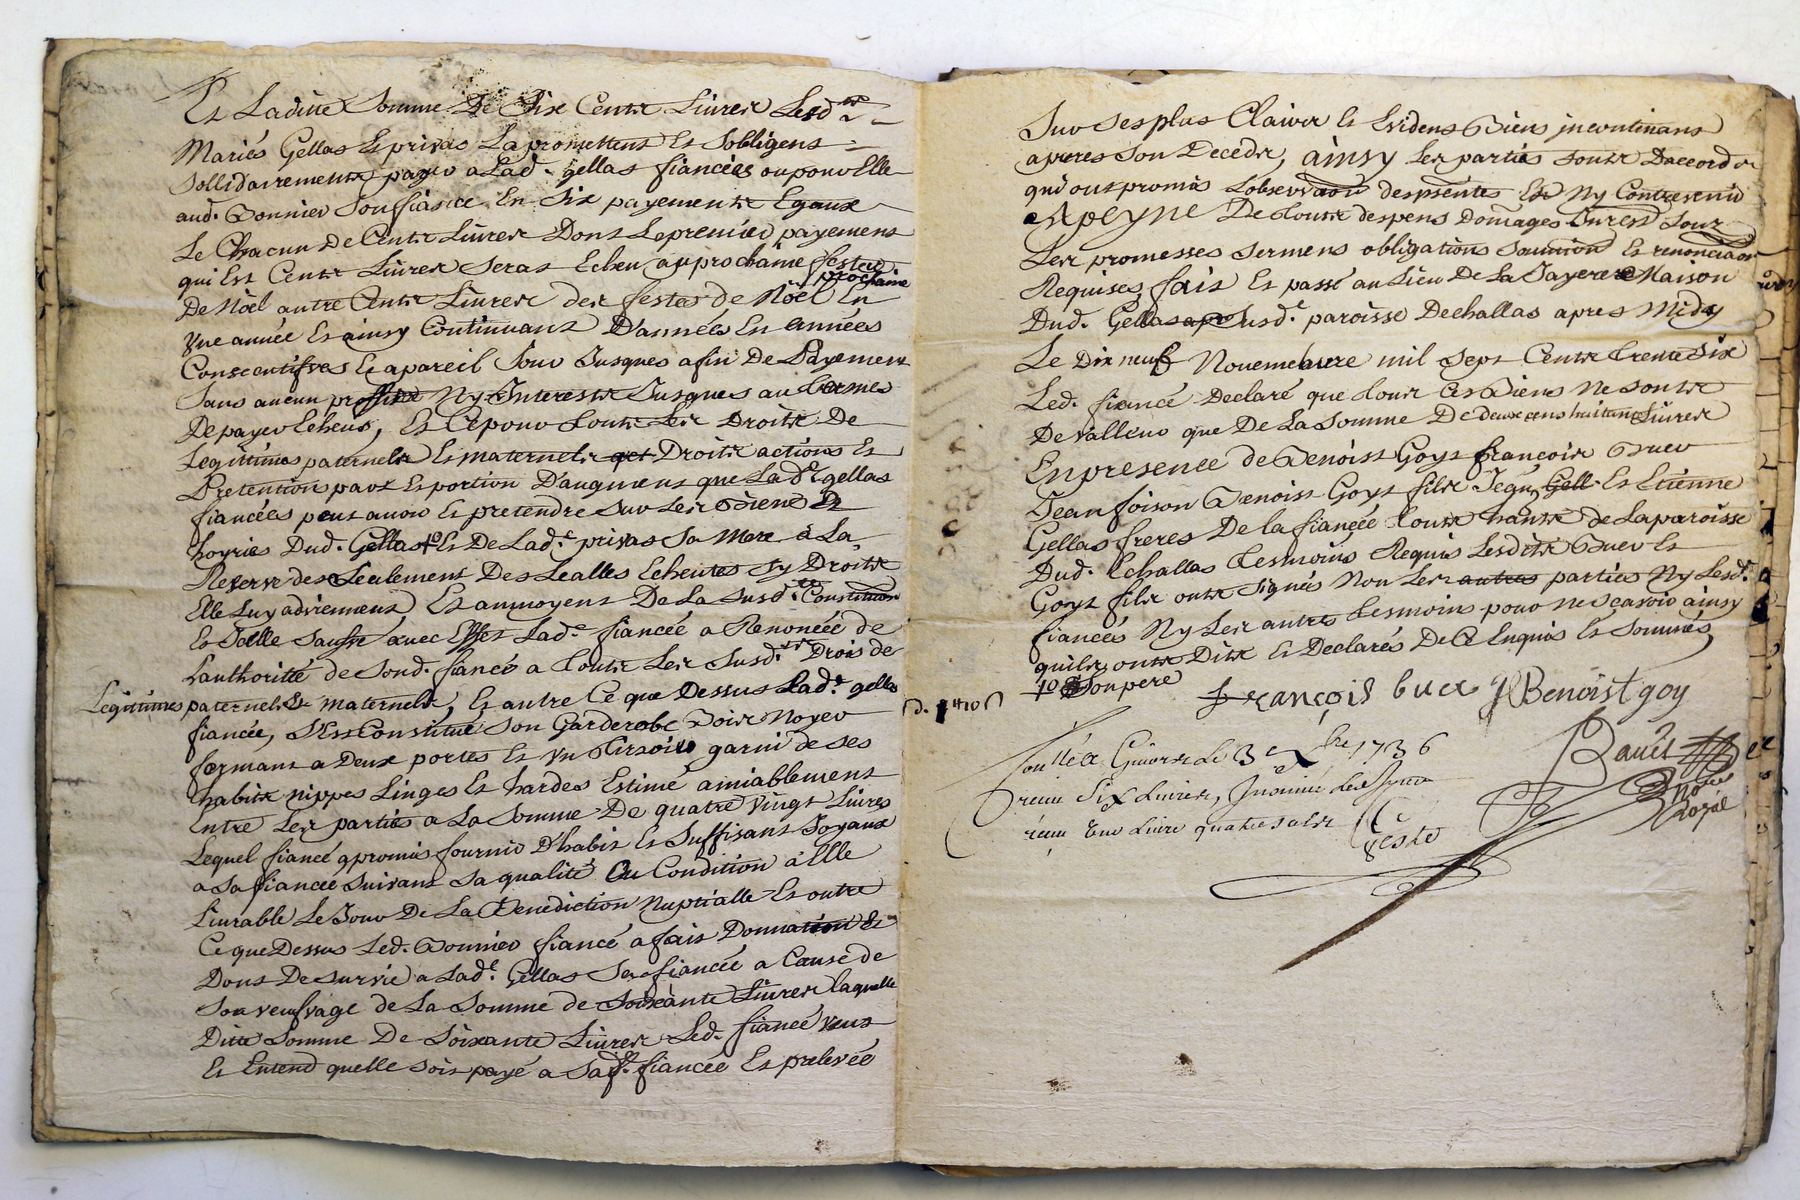 Et Laditte Somme De Six Cents Livres Lesd.
Mariés Gellas Et privas La promettent Et Sobligent
Sollidairement payer a Lad. gellas fiancées ou pour Elle
aud. Bonnier Son fiancé En Six payements Egaux
Le Chacun De Cents Livres Dont Le premier payement
qui Est Cents Livres Seras Echeu aux prochaine festes
prochaine
De Nöel autre Cents Livres des festes de Nöel En
Une année Et ainsy Continuant D'années En années
Consecutifves Et a pareil Jour Jusques a fin De Payement
Sans aucun proffit Ny Interests Jusques au termes
De payer Echeus, Et Ce pour toutes Les Droits De
Legitimes paternels Et maternels Droits actions Et
Pretention part Et portion D'augment que Lad.e gellas
fiancées peut avoir Et pretendre Sur Les Biens Et
hoyries Dud. Gellas Et De Lad.e privas Sa Mere a La
Reserve des Seulement Des Lealles Echeutes Sy Droits
Elle Luy adviennent, Et aumoyent De La Susd.e Constitution
Et Icelle Saufve avec Effet Lad.e fiancée a Renoncée de
L'authoritté de Sond. fiancé a touts Les Susd.ts Drois de
Legitimes paternels Et maternels, Et autre Ce que Dessus Lad.e gellas
fiancée, S'Est Constitué Son Garderobe Bois Noyer
fermant a Deux portes Et un Tirsoir garni de ses
habits nippes Linges Et hardes Estimé amiablement
Entre Les parties a La Somme De quatre vingt Livres
Lequel fiancé a promis fournir D'habit Et Suffisant Joyaux
a Sa fiancée Suivant Sa qualité Ou Condition a Elle
Livrable Le Jour De La Benediction Nuptialle Et outre
Ce que Dessus Led. Bonnier fiancé a fait Donnation Et
Dont De Survie a Lad.e Gellas Sa fiancée a Cause de
Son veufvage de La Somme de Soixante Livres laquelle
Ditte Somme De Soixante Livres Led. fiancé veut
Et Entend quelle Soit payé a Sad.e fiancée Et prelevée
Sur Ses plus Clairs Et Evidens Biens incontinant
apres Son Decedz, ainsy Les parties Sonts D'accord
qui ont promis L'observation des psentes Et Ny Contrevenir
A peyne De touts despens Domages Jurent Sour
Les promesses Sermens obligations Soumission Et renonciaon
Requises, fait Et passé au Lieu De La Maison
Dud. Gellas Susd.e paroisse Dechallas apres Midy
Le Dix neuf Novemebvre mil Sept Cents trente Six
Led. fiancé Declaré que tous Ces Biens Ne Sonts
De valleur que De La Somme De deux cens huitante Livres
En presence de Benoist Goyt françois Buer
Jean foison Benoist Goyt fils Et Etienne
Gellas freres De la fiancée touts hants de La paroisse
Dud. Echallas tesmoins Requis Lesdits Buer Et
Goyt fils onts Signés Non Les autres parties Ny Lesd.
fiancés Ny Les autres tesmoins pour ne Scavoir ainsy
quils onts Dits Et Declarés De Ce Enquis Et Sommés
Son pere
françois buer J Benoist goy
Controllé a Givors Le 3e Xbre 1736
receu Six Livres, Insinué led. jour
receu Une Livre quatre Sols
Teste
no.re
Royal